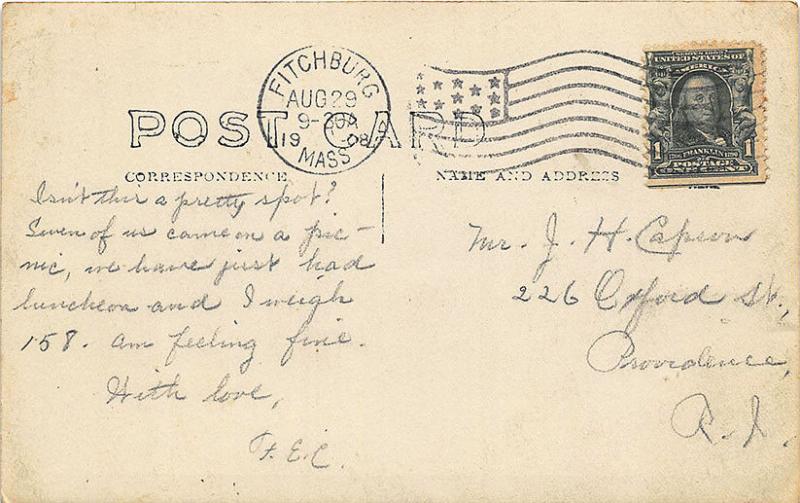 POST CARD
FITCHBURG
AUG 29
9-30A
1908
MASS
UNITED STATES OF AMERICA
1 FRANKLIN 1
POSTAGE
ONE CENT
CORRESPONDENCE
NAME AND ADDRESS
Isn't this a pretty spot?
Seven of us came on a pic-
nic, we have just had
luncheon and I weigh
158. am feeling fine.
With love,
F. E. C.
Mr. J. H. Capron
226 Oxford St.,
Providence,
R. I.